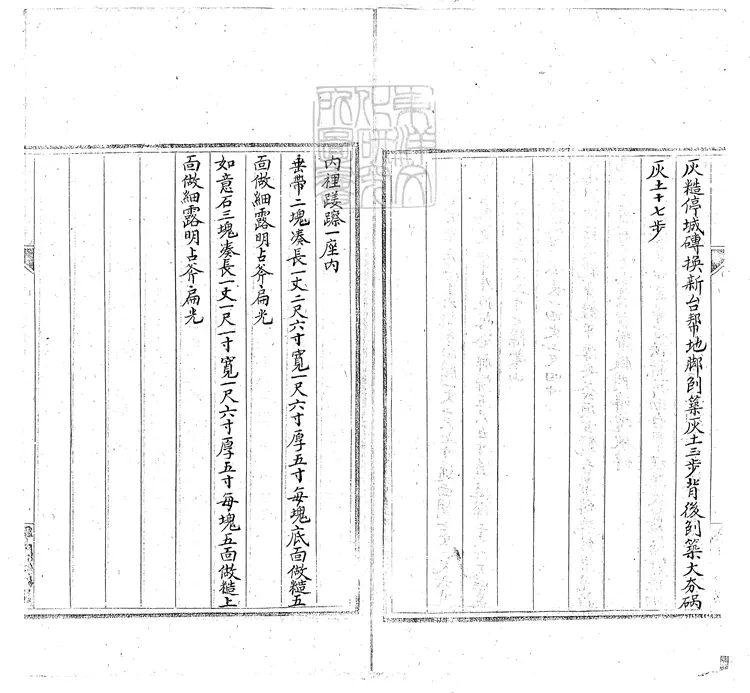 灰糙停城磚換新台幫地腳刨築灰土三步背後刨築大夯硪
灰土十七步
內裡踏跺一座內
垂帶二塊湊長一丈二尺六寸寬一尺六寸厚五寸每塊底面做糙五
面做細露明占斧扁光
如意石三塊湊長一丈一尺一寸寬一尺六寸厚五寸每塊五面做糙上
面做細露明占斧扁光